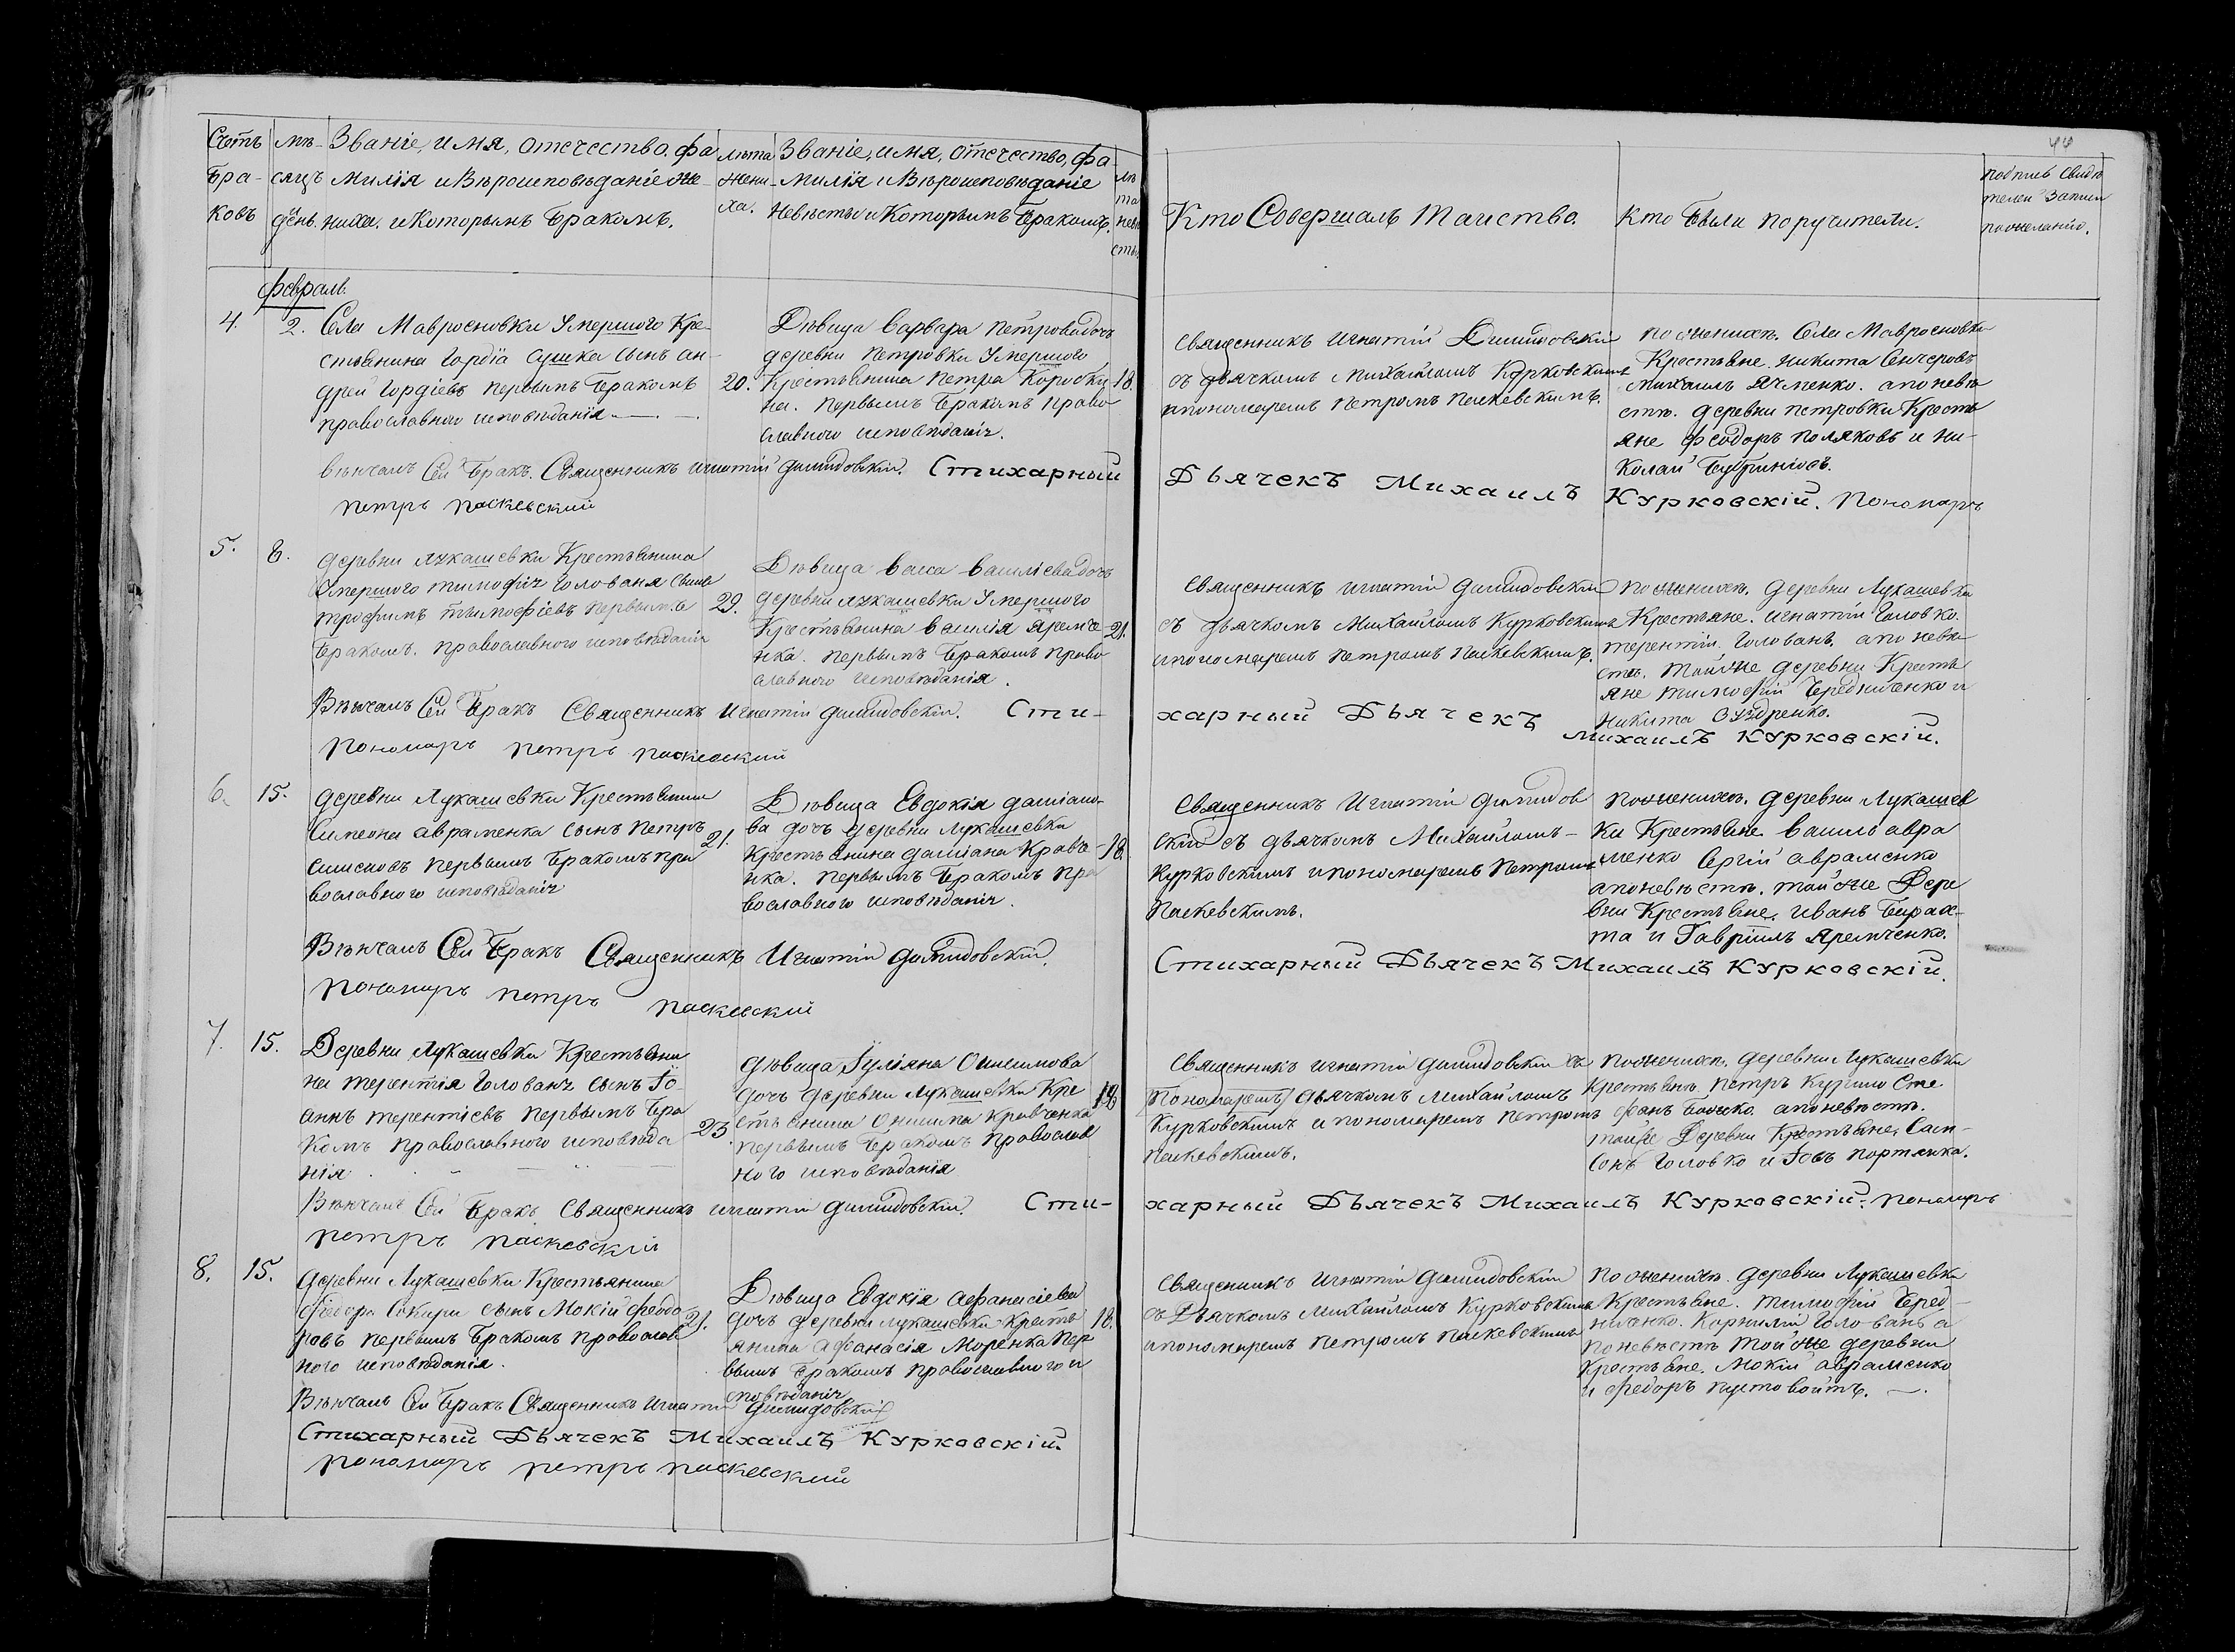 Счетъ бра- ковъ
мѣ- сяцъ и день.
Званіе, имя, отечество, фа
милія и Вѣроисповѣданіе же-
ниха, и Которымъ бракомъ.
лѣта жени- ха.
Званіе, имя, отечество, фа-
милія и Вѣроисповѣданіе
невѣсты и Которымъ бракомъ.
лѣ та невѣ сты
Кто Совершалъ таинство.
Кто были поручители.
подпись свидѣ
телей записи
по желанію.
44
февраль.
4.
2.
Села Мавросновки Умершого Кре-
стьянина Гордія Сушка сынъ Ан-
дрей Гордіевъ первымъ бракомъ
православного исповѣданія
20.
Дѣвица Варвара Петрова дочь
деревни Петровки Умершого
Крестьянина Петра Коробки
на. первымъ бракомъ право
славного исповѣданія.
18.
Священникъ Игнатій
съ дьячкомъ Михаиломъ Курковскимъ
и пономаремъ Петромъ Паскевскимъ.
По женихѣ. Села Мавросновки
Крестьяне. Никита Сенчеровъ
Михаилъ Яченко. а по невѣ
стѣ. деревни Петровки Кресть
яне Феодоръ Поляковъ и Ни-
колай
Вѣнчалъ Сей бракъ. Священникъ Игнатій Стихарный
Дьячекъ Михаилъ Курковскій. Пономарь
Петръ Паскевский
5.
8.
деревни Лукашевки Крестьянина
Умершого Тимофія Голованя Сынъ
Трофимъ Тимофіевъ первымъ
бракомъ. православного исповѣданія
29.
Дѣвица Васса Василіева дочь
деревни Лукашевки Умершого
Крестьянина Василія Яремче-
нка. первымъ бракомъ право
славного исповѣданія.
21.
Священникъ Игнатій
съ дьячкомъ Михаиломъ Курковскимъ
и пономаремъ Петромъ Паскевскимъ.
По женихѣ. деревни Лукашевки
Крестьяне. Игнатій Головко.
Терентій Голованъ. а по невѣ
стѣ. той же деревни Кресть
яне Тимофій Чередниченко и
Никита
Вѣнчалъ Сей бракъ Священникъ Игнатій Сти-
харный Дьячекъ Михаилъ Курковскій.
Пономарь Петръ Паскевский
6.
15.
деревни Лукашевки Крестьянина
Симеона Авраменка сынъ Петръ
Симеоновъ первымъ бракомъ пра
вославного исповѣданія
21.
Дѣвица Евдокія Даміано-
ва дочь деревни Лукашевки
Крестьянина Даміана Кравче-
нка. первымъ бракомъ пра
вославного исповѣданія.
18.
Священникъ Игнатій
скій съ дьячкомъ Михаиломъ-
Курковскимъ и пономаремъ Петромъ
Паскевскимъ.
По женихѣ. деревни Лукашев
ки Крестьяне Василь Авра
менко Сергій Авраменко
а по невѣстѣ. той же Дере
вни Крестьяне. Иванъ
та и Гавріилъ Яремченко.
Вѣнчалъ Сей бракъ Священникъ Игнатій
Стихарный Дьячекъ Михаилъ Курковскій.
Пономарь Петръ Паскевский
7.
15.
Деревни Лукашевки Крестьяни
на Терентія Голованя сынъ Іо-
аннъ Терентіевъ первымъ бра
комъ православного исповѣда
нія
23.
Дѣвица Іуліяна Онисимова
дочь деревни Лукашевки Кре
стьянина Онисима Кравченка
первымъ бракомъ православ
ного исповѣданія
18
Священникъ Игнатій съ
Пономаремъ дьячкомъ Михаиломъ
Курковскимъ и пономаремъ Петромъ
Паскевскимъ.
По женихѣ. деревни Лукашевки
Крестьяне Петръ Сте
фанъ Божко. а по невѣстѣ.
той же Деревни Крестьяне. Сам-
сонъ Головко и Іовъ Портянка.
Вѣнчалъ Сей бракъ Священникъ Игнатій Сти-
харный Дьячекъ Михаилъ Курковскій. Пономарь
Петръ Паскевскій
8.
15.
деревни Лукашевки Крестьянина
Феодора Сокири сынъ Мокій Феодо
ровъ первымъ бракомъ православ
ного исповѣданія.
21.
Дѣвица Евдокія Афанасіева
дочь деревни Лукашевки Кресть
янина Афанасія Моренка пер
вымъ бракомъ православного и
сповѣданія
18.
Священникъ Игнатій
съ Дьячкомъ Михаиломъ Курковскимъ
и пономаремъ Петромъ Паскевскимъ
По женихѣ. деревни Лукашевки
Крестьяне. Тимофій Черед-
ниченко. Корнилій Голованъ а
по невѣстѣ той же деревни
Крестьяне. Мокій Авраменко
и Федоръ Пустовойтъ.
Вѣнчалъ Сей бракъ Священникъ Игнатій
Стихарный Дьячекъ Михаилъ Курковскій.
Пономарь Петръ Паскевский